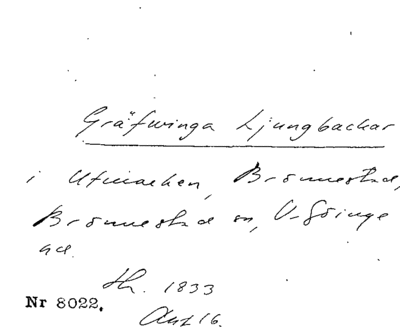 Gräfwinga Ljungbackar
i Utmarken, Brönnestad,
Brönnestad sn, V-Göinge
hd.
Sk. 1833
Nr 8022.
Akt 16.